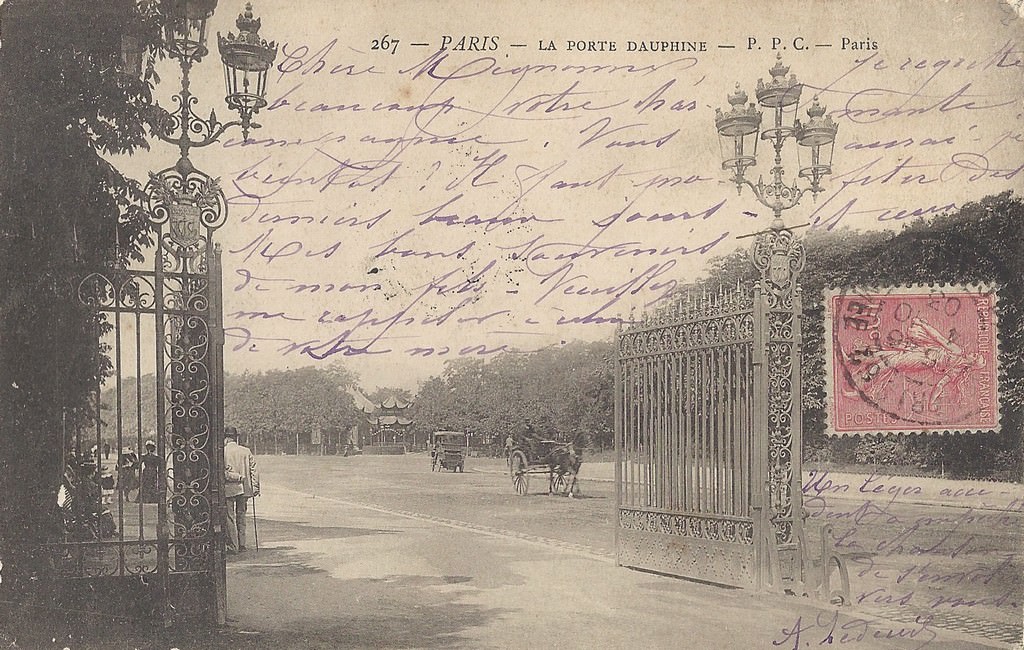 267 — PARIS — LA PORTE DAUPHINE — P. P. C. — Paris
Chère Mignonne, je regrette
beaucoup votre char- mante
compagnie. Vous aurai-je
bientôt ? Il faut pro- fiter des
derniers beaux jours - et
Mes bons souvenirs
de mon fils - Veuillez
me rappeler à
de votre mère
Un léger acci-
dent a
la
de
vers vous
A.
POSTES